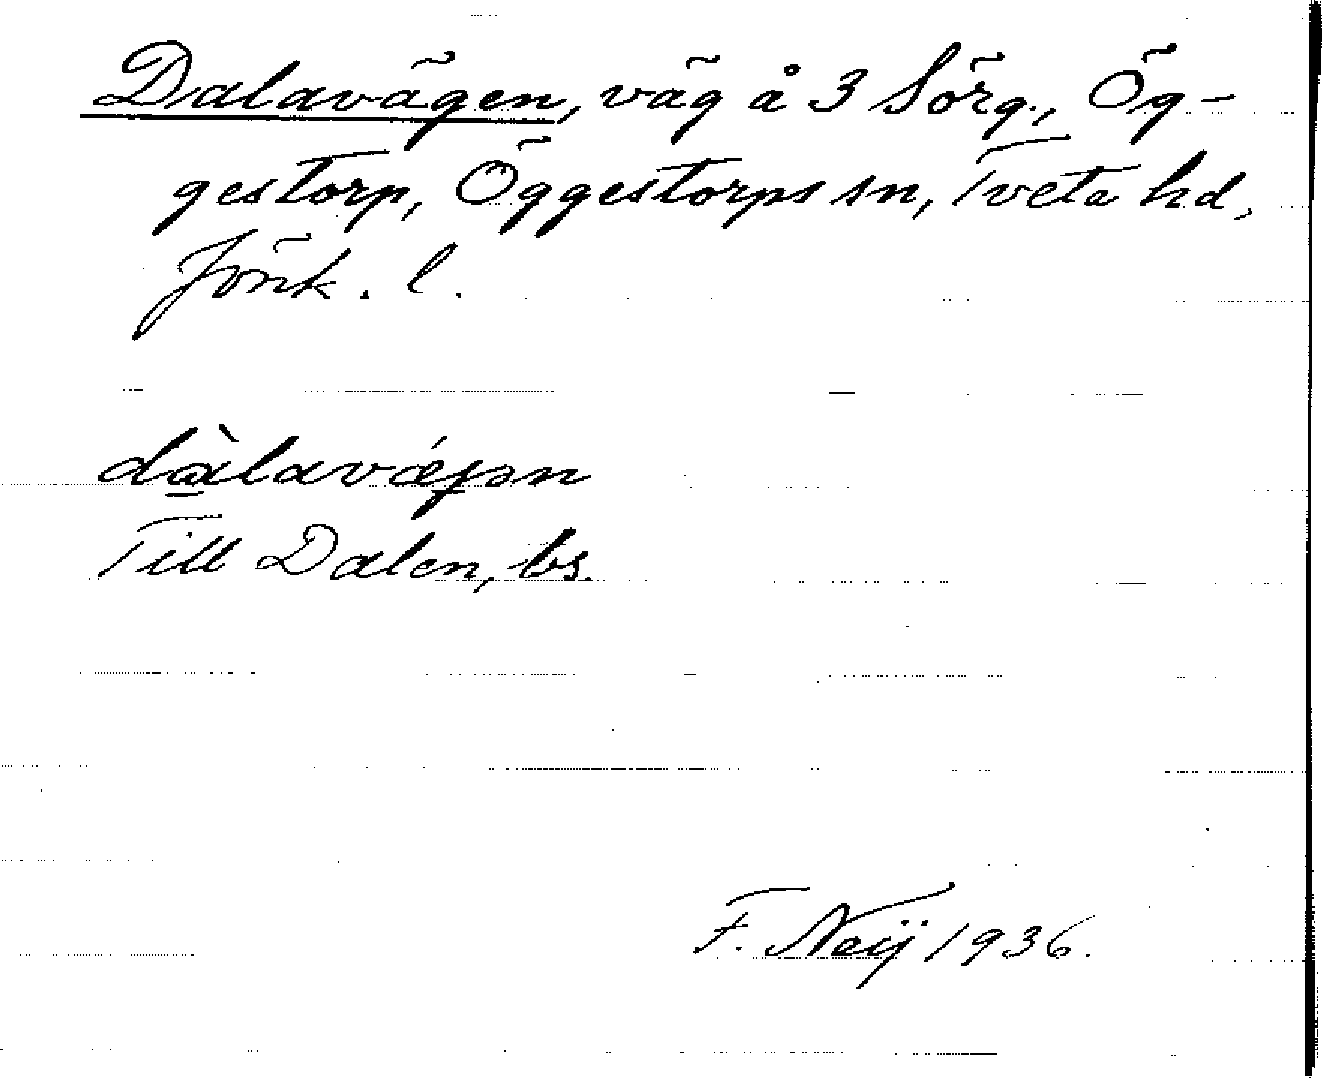 Dalavägen, väg å 3 Sörg., Ög-
gestorp, Öggestorps sn, Tveta hd,
Jönk. l.
Till Dalen, bs.
F. Neij 1936.